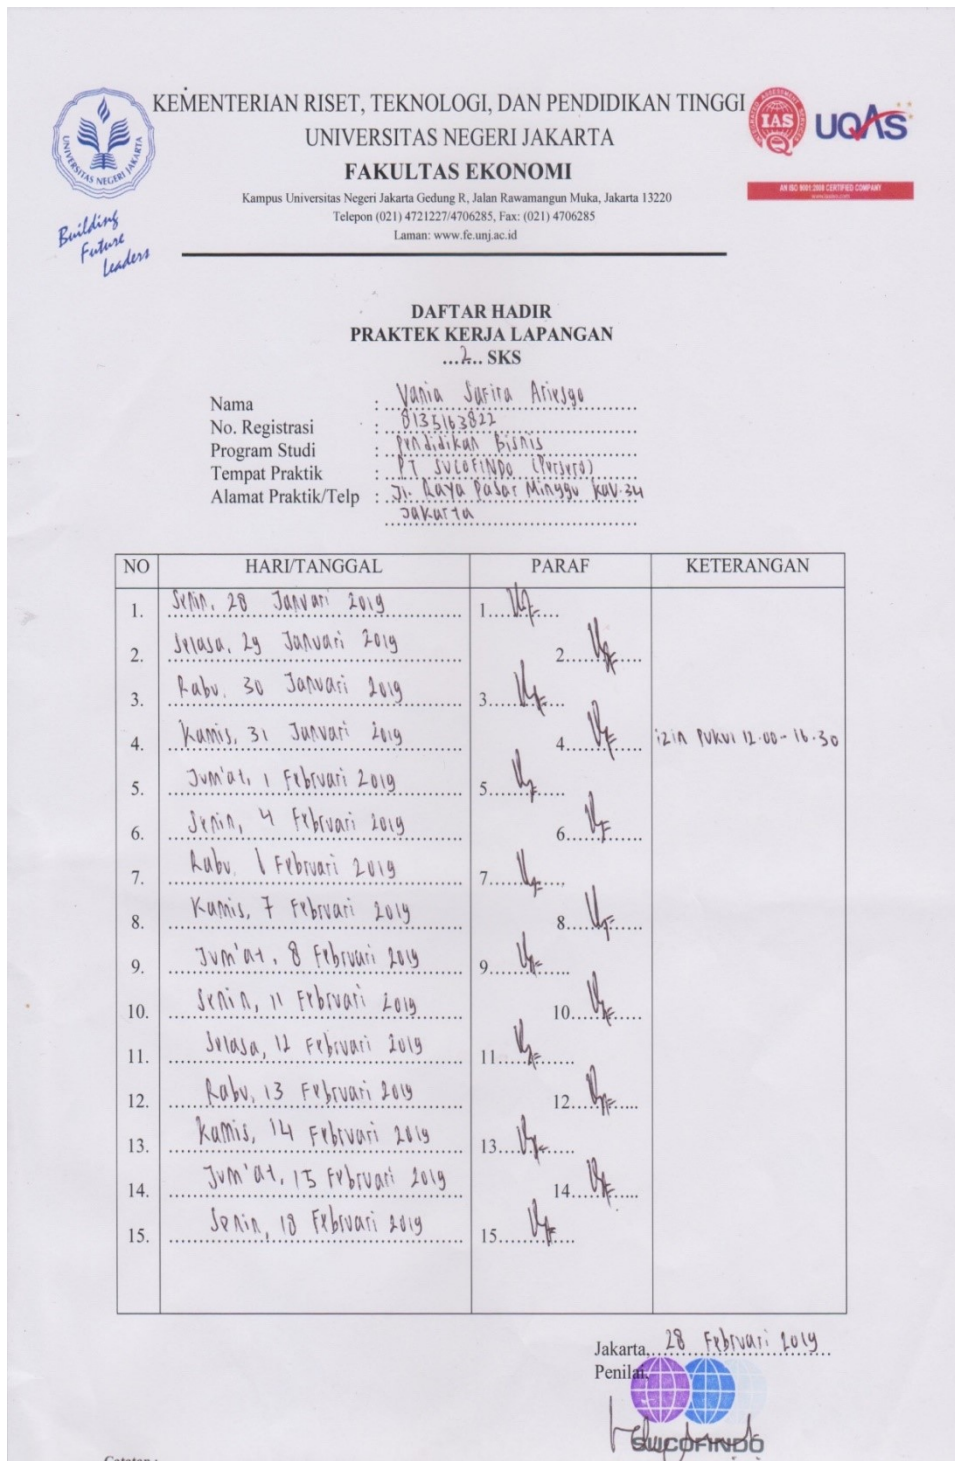 KEMENTERIAN RISET, TEKNOLOGI, DAN PENDIDIKAN TINGGI
UNIVERSITAS NEGERI JAKARTA
FAKULTAS EKONOMI
Kampus Universitas Negeri Jakarta Gedung R, Jalan Rawamangun Muka, Jakarta 13220
Telepon (021) 4721227/4706285, Fax: (021) 4706285
Laman: www.fe.unj.ac.id
UNIVERSITAS NEGERI JAKARTA
Building
Future
Leaders
IAS
UQAS
AN ISO 9001:2008 CERTIFIED COMPANY
DAFTAR HADIR
PRAKTEK KERJA LAPANGAN
...2... SKS
Nama : Vania Safira Ariesga
No. Registrasi : 8135163822
Program Studi : Pendidikan Bisnis
Tempat Praktik : PT SUCOFINDO (Persero)
Alamat Praktik/Telp : Jl. Raya Pasar Minggu Kav.34
Jakarta
NO HARI/TANGGAL PARAF KETERANGAN
1. Senin, 28 Januari 2019 1.
2. Selasa, 29 Januari 2019 2.
3. Rabu, 30 Januari 2019 3.
4. Kamis, 31 Januari 2019 4. izin pukul 12.00 - 16.30
5. Jum'at, 1 Februari 2019 5.
6. Senin, 4 Februari 2019 6.
7. Rabu, 6 Februari 2019 7.
8. Kamis, 7 Februari 2019 8.
9. Jum'at, 8 Februari 2019 9.
10. Senin, 11 Februari 2019 10.
11. Selasa, 12 Februari 2019 11.
12. Rabu, 13 Februari 2019 12.
13. Kamis, 14 Februari 2019 13.
14. Jum'at, 15 Februari 2019 14.
15. Senin, 18 Februari 2019 15.
Jakarta, 28 Februari 2019
Penilai,
SUCOFINDO